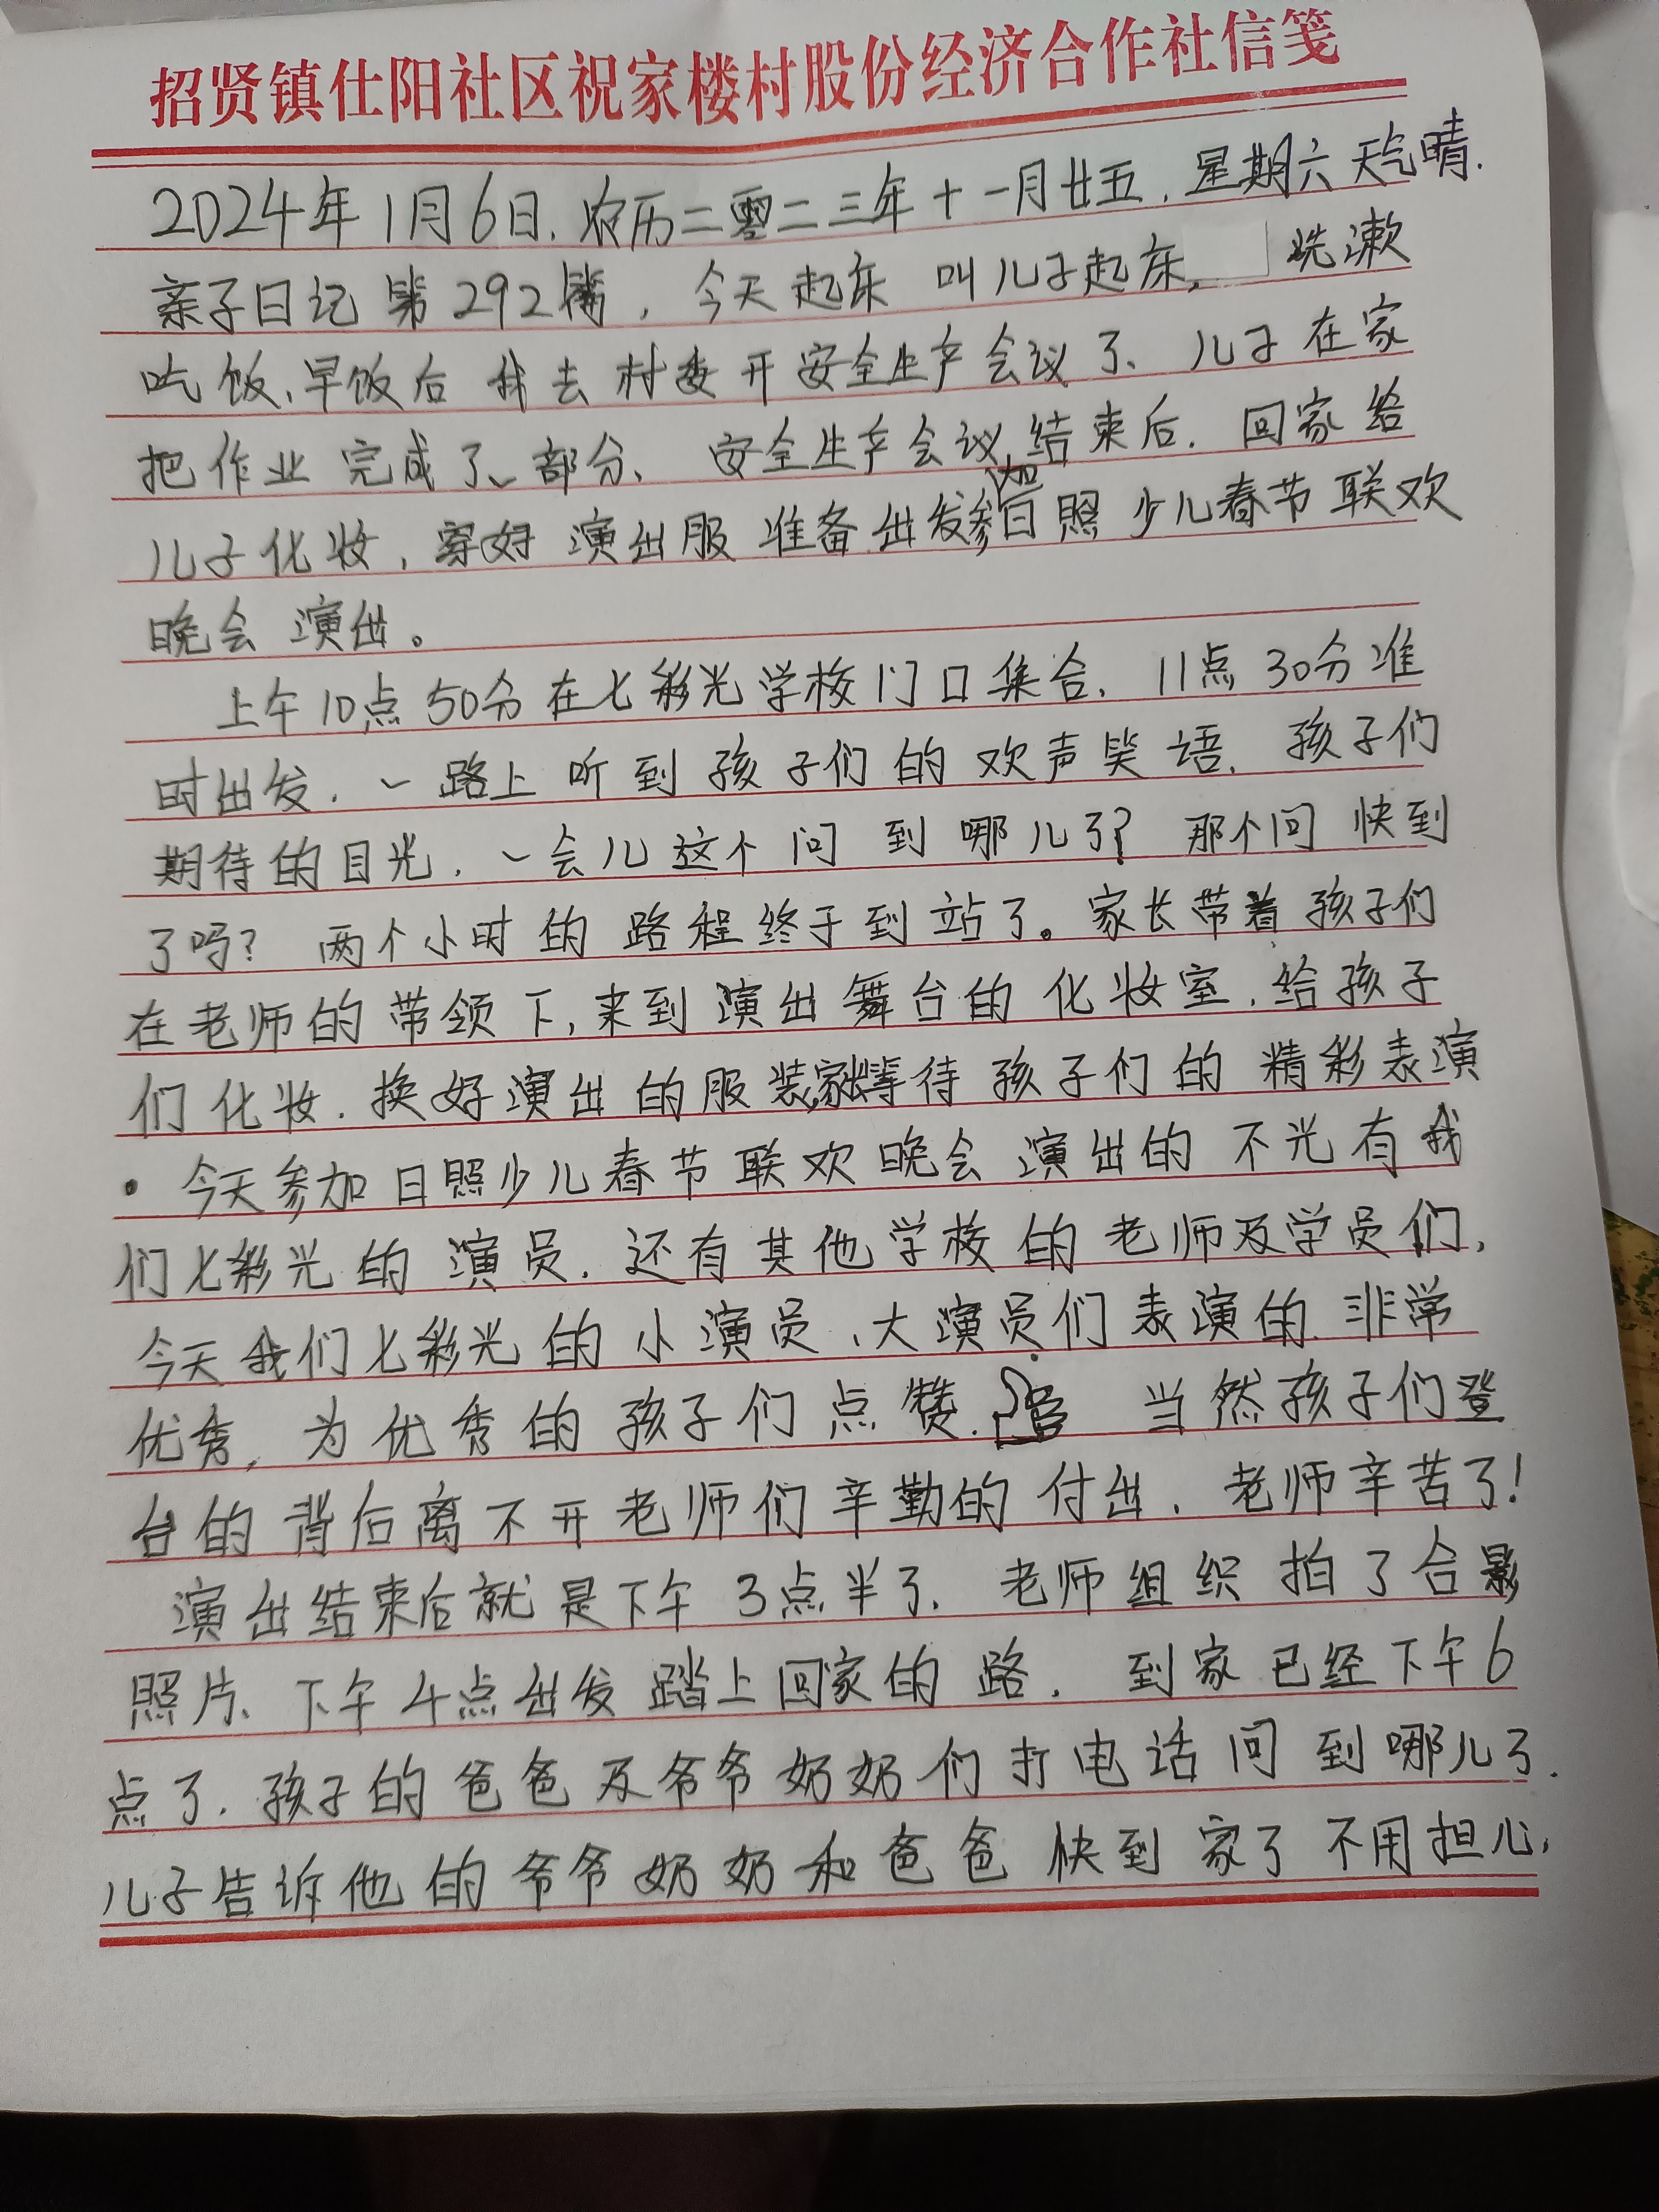 招贤镇仕阳社区祝家楼村股份经济合作社信笺
2024年1月6日.农历二零二三年十一月廿五.星期六天气晴.
亲子日记第292篇,今天起床叫儿子起床,洗漱
吃饭、早饭后我去村委开安全生产会议了、儿子在家
把作业完成了一部分、安全生产会议结束后.回家给
儿子化妆,穿好演出服准备出发参加日照少儿春节联欢
晚会演出。
上午10点50分在七彩光学校门口集合、11点30分准
时出发.一路上听到孩子们的欢声笑语.孩子们
期待的目光.一会儿这个问到哪儿了?那个问快到
了吗?两个小时的路程终于到站了。家长带着孩子们
在老师的带领下,来到演出舞台的化妆室.给孩子
们化妆.换好演出的服装家长等待孩子们的精彩表演
·今天参加日照少儿春节联欢晚会演出的不光有我
们七彩光的演员.还有其他学校的老师及学员们,
今天我们七彩光的小演员、大演员们表演的非常
优秀,为优秀的孩子们点赞.当然孩子们登
台的背后离不开老师们辛勤的付出.老师辛苦了!
演出结束后就是下午3点半了.老师组织拍了合影
照片、下午4点出发踏上回家的路.到家已经下午6
点了.孩子的爸爸及爷爷奶奶们打电话问到哪儿了.
儿子告诉他的爷爷奶奶和爸爸快到家了不用担心,